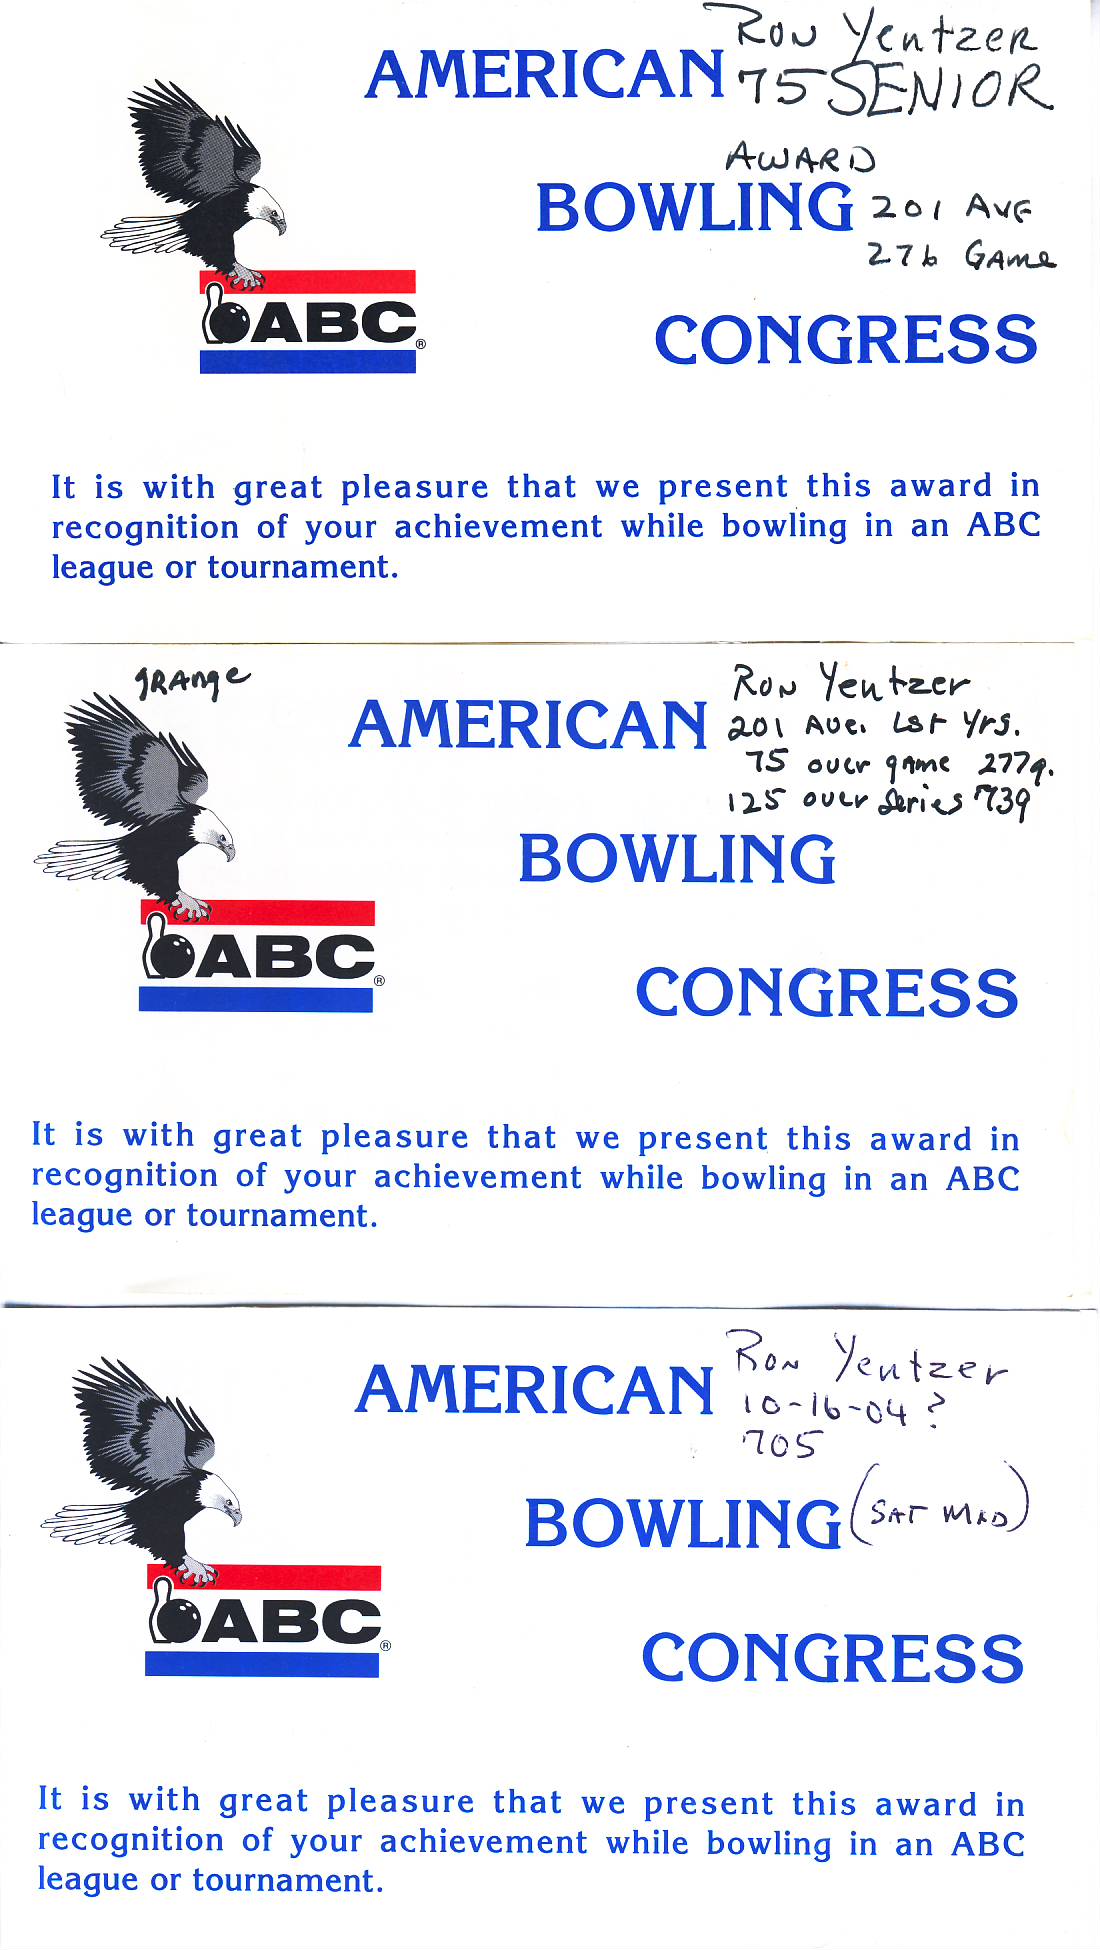 Ron Yentzer
AMERICAN 75 SENIOR
AWARD
BOWLING 201 AVG
276 GAME
CONGRESS
ABC®
It is with great pleasure that we present this award in
recognition of your achievement while bowling in an ABC
league or tournament.
grange
Ron Yentzer
AMERICAN 201 Ave. Lst Yrs.
75 over game 277g.
125 over Series 739
BOWLING
ABC®
CONGRESS
It is with great pleasure that we present this award in
recognition of your achievement while bowling in an ABC
league or tournament.
Ron Yentzer
AMERICAN 10-16-04?
705
BOWLING (SAT MXD)
ABC®
CONGRESS
It is with great pleasure that we present this award in
recognition of your achievement while bowling in an ABC
league or tournament.